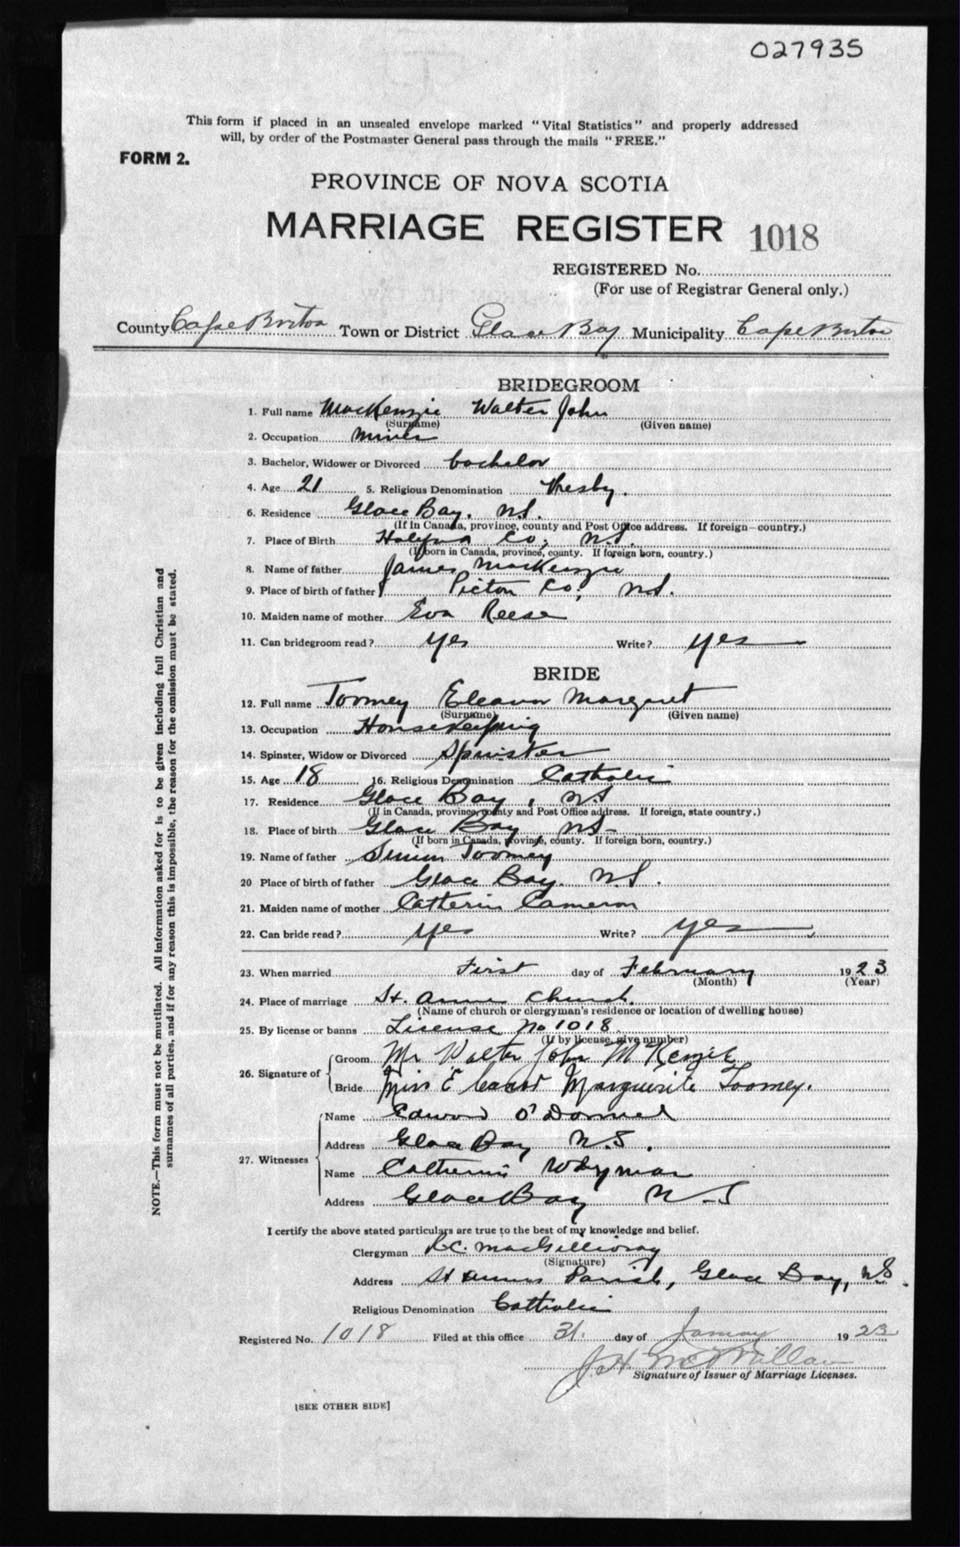 027935
This form if placed in an unsealed envelope marked "Vital Statistics" and properly addressed
will, by order of the Postmaster General pass through the mails "FREE."
FORM 2.
PROVINCE OF NOVA SCOTIA
MARRIAGE REGISTER 1018
REGISTERED No.
(For use of Registrar General only.)
County Cape Breton Town or District Glace Bay Municipality Cape Breton
BRIDEGROOM
1. Full name MacKenzie Walter John
(Surname) (Given name)
2. Occupation Miner
3. Bachelor, Widower or Divorced bachelor
4. Age 21 5. Religious Denomination Presby.
6. Residence Glace Bay. N.S.
(If in Canada, province, county and Post Office address. If foreign—country.)
7. Place of Birth Halifax Co; N.S.
(If born in Canada, province, county. If foreign born, country.)
8. Name of father James MacKenzie
9. Place of birth of father Picton Co; N.S.
10. Maiden name of mother Eva Reese
11. Can bridegroom read? yes Write? yes
BRIDE
12. Full name Toomey Eleanor Margaret
(Surname) (Given name)
13. Occupation Housekeeping
14. Spinster, Widow or Divorced Spinster
15. Age 18 16. Religious Denomination Catholic
17. Residence Glace Bay, NS
(If in Canada, province, county and Post Office address. If foreign, state country.)
18. Place of birth Glace Bay NS-
(If born in Canada, province, county. If foreign born, country.)
19. Name of father Simon Toomey
20 Place of birth of father Glace Bay. N.S.
21. Maiden name of mother Catherin Cameron
22. Can bride read? yes Write? yes
23. When married First day of February 1923
(Month) (Year)
24. Place of marriage St. Anns Church.
(Name of church or clergyman's residence or location of dwelling house)
25. By license or banns License No 1018
(If by license, give number)
26. Signature of
Groom Mr Walter John McKenzie
Bride Miss Eleanor Marguerite Toomey.
27. Witnesses
Name Edward O'Donnel
Address Glace Bay N.S.
Name Catherine Wadyman
Address Glace Bay N-S
I certify the above stated particulars are true to the best of my knowledge and belief.
Clergyman MacGillivray
(Signature)
Address St Anns Parish, Glace Bay, NS.
Religious Denomination Catholic
Registered No. 1018 Filed at this office 31. day of January 1923
J. H. McMillan
Signature of Issuer of Marriage Licenses.
[SEE OTHER SIDE]
NOTE.—This form must not be mutilated. All information asked for is to be given including full Christian and
surnames of all parties, and if for any reason this is impossible, the reason for the omission must be stated.